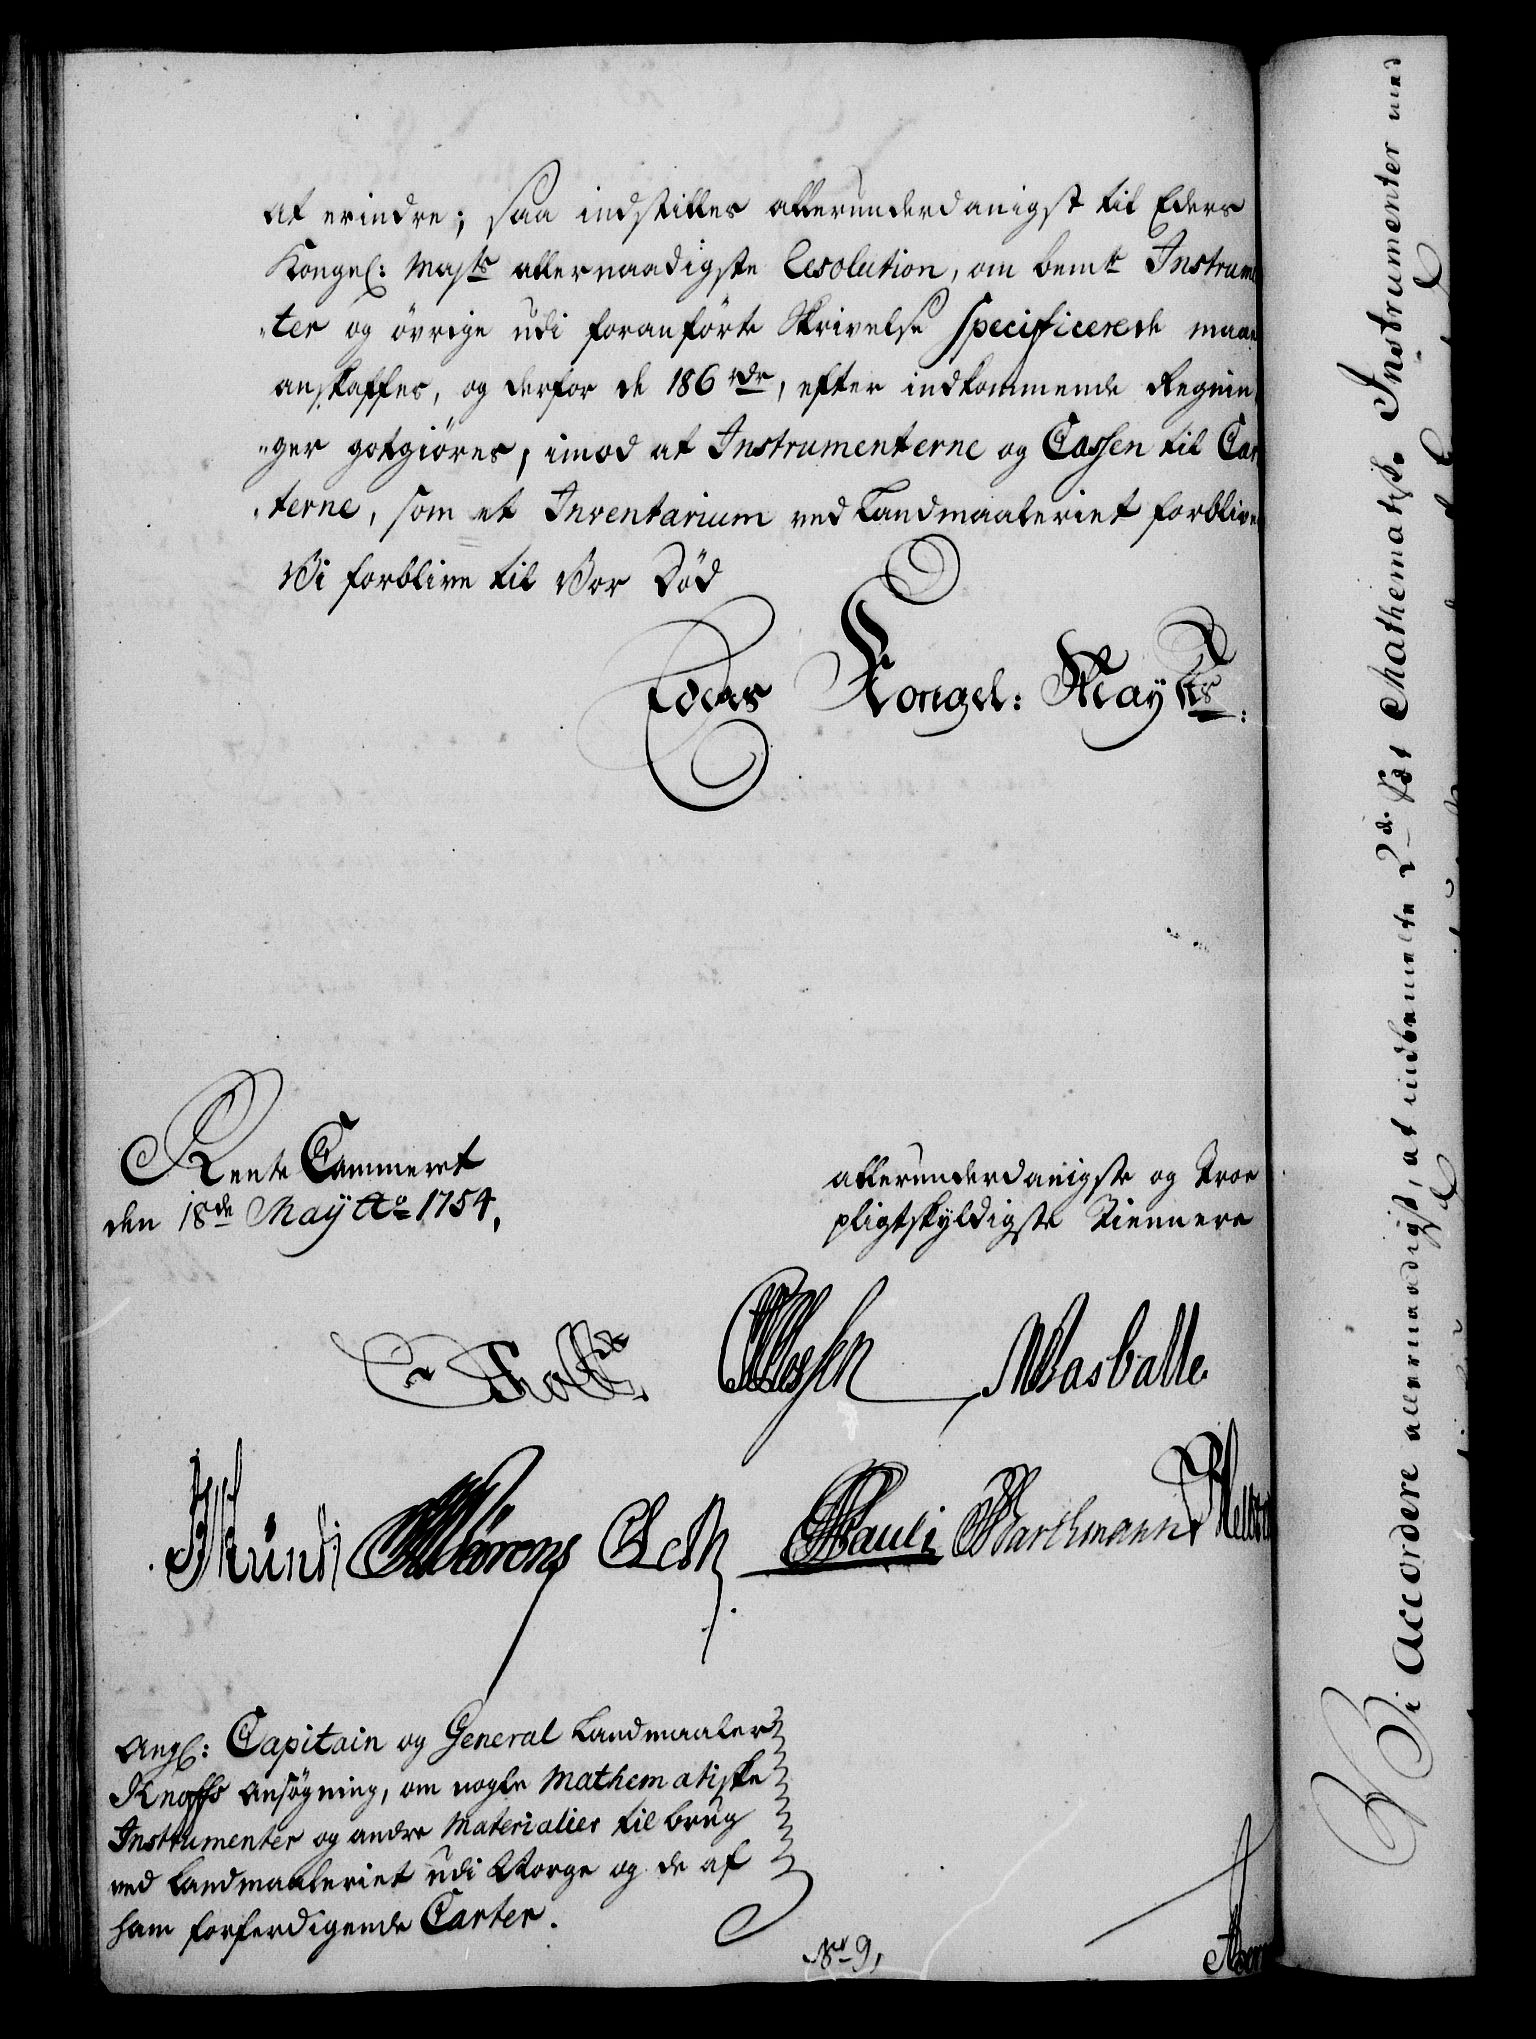 at erindre; saa indstilles allerunderdanigst til Eders
Kongel: Mayts allernaadigste Resolution, om bemte Instrumen
-ter og övrige udi foranförte Skrivelse Specificerede maae
anskaffes, og derfor de 186 rdr, efter indkommende Regnin
-ger gotgiöres, imod at Instrumenterne og Cassen til Car
-terne, som et Inventarium ved Landmaaleriet forblive
Vi forblive til Vor Död
Eders Kongel: Mayts:
Rente Cammeret
den 18de May Ao 1754,
allerunderdanigste og Troe
pligtskyldigste Tiennere
Holst
Masballe
Mörens
CLeth
Pauli
Barthmann
Angl: Capitain og General Landmaaler
Knoffs Ansögning, om nogle Mathematiske
Instrumenter og andre Materialier til brug
ved Landmaaleriet udi Norge og de af
ham forferdigende Carter.
No 9,
Vi Accordere allernaadigst, at indbemelte 2de sæt Mathematiske Instrumenter med